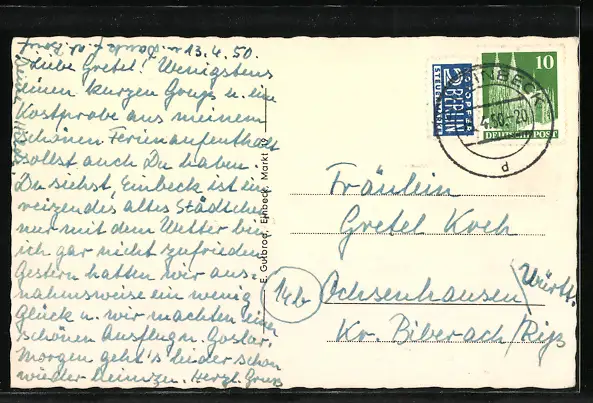 13.4.50.
Liebe Gretel! Wenigstens
einen kurzen Gruß u. eine
Kostprobe aus meinem
schönen Ferienaufenthalt
sollst auch Du haben.
Du siehst, Einbeck ist ein
reizendes altes Städtchen
nur mit dem Wetter bin
ich gar nicht zufrieden
Gestern hatten wir aus-
nahmsweise ein wenig
Glück u. wir machten einen
schönen Ausflug n. Goslar.
Morgen geht's leider schon
wieder heimzu. Herzl. Gruß
E. Gutbrod, Einbeck, Markt
NOTOPFER
2 BERLIN
STEUERMARKE
10
DEUTSCHE POST
EINBECK
d
Fräulein
Gretel Koch
14b
Ochsenhausen
Württ.
Kr. Biberach/Riß